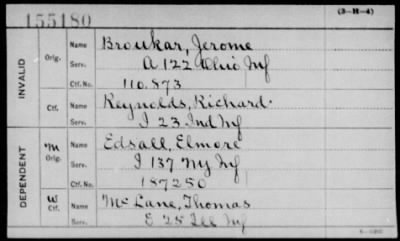 155180
(3-H-4)
INVALID Orig. Name Broukar, Jerome
Serv. A 122 Ohio Inf
Ctf. No. 110.873
Ctf. Name Reynolds, Richard.
Serv. I 23 Ind Inf
DEPENDENT M Orig. Name Edsall, Elmore
Serv. I 137 NY Inf
Ctf. No. 187250
W Ctf. Name McLane, Thomas
Serv. E 25 Ill Inf